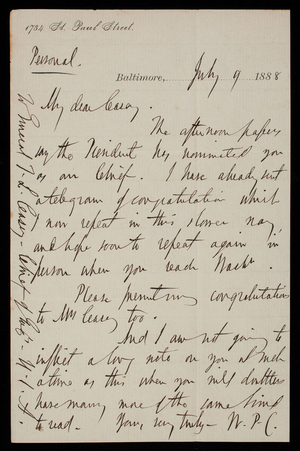 1734 St. Paul Street.
Personal.
Baltimore, July 9 1888
My dear Casey.
The afternoon papers
say the President has nominated you
as our Chief. I have already sent
a telegram of congratulation which
I now repeat in this slower way
and hope soon to repeat again in
person when you reach Washn.
Please permit my congratulations
to Mrs Casey too.
And I am not going to
inflict a long note on you at such
a time as this when you will doubtless
have many more of the same kind
to read. Yours, very truly - W. P. C.
To General T. L. Casey - Chief of Engrs - U.S.A.